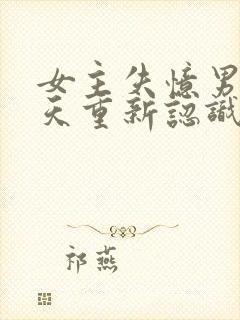 女主失憶男
天重新認識
祁燕